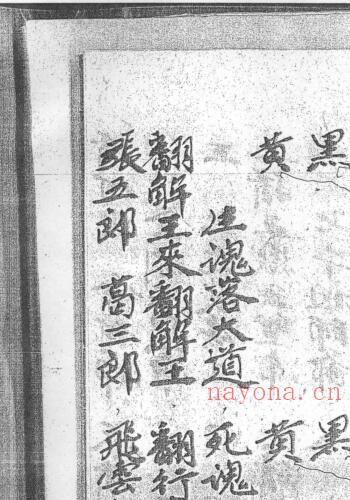 黑 黑
黄 黄
生魂落大道，死魂
翻解王來翻解王，翻行
張五郎 葛三郎，飛雲
nayona.cn